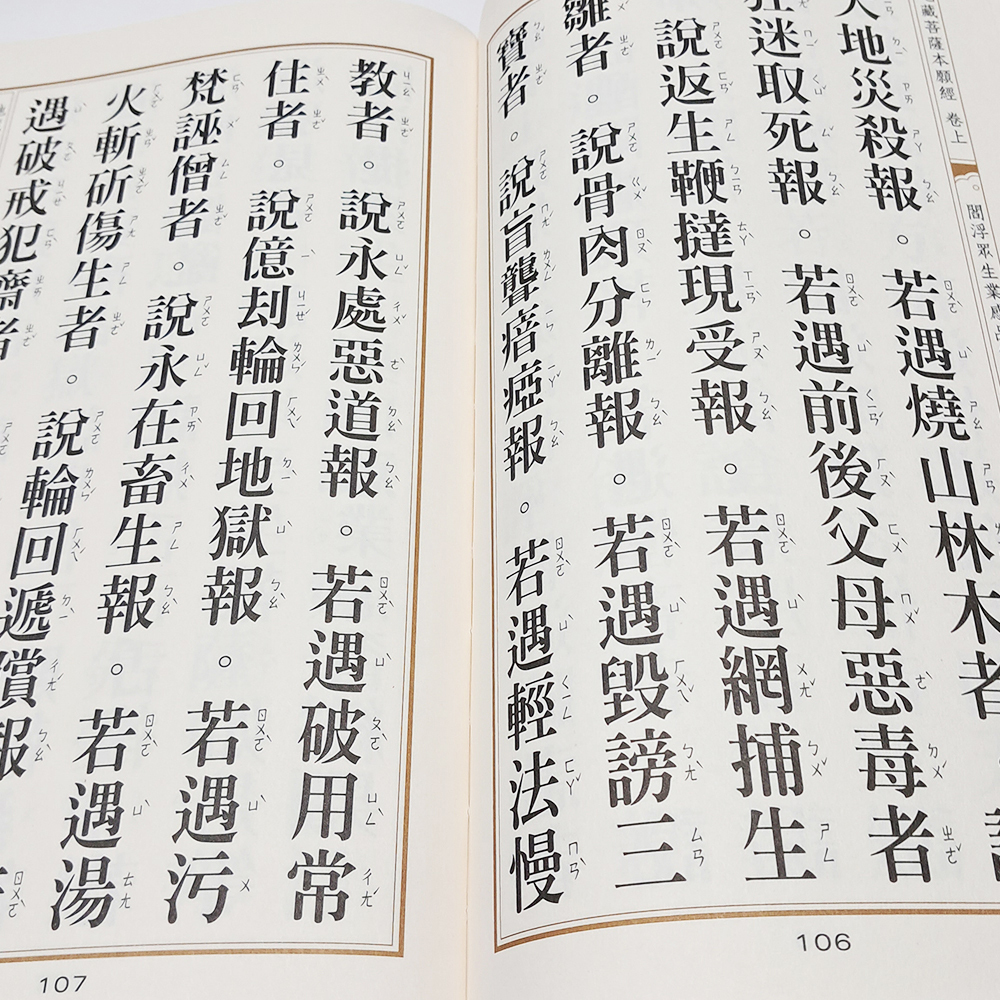 藏菩薩本願經 卷上 。閻浮眾生業感
天地災殺報。若遇燒山林木者。說
狂迷取死報。若遇前後父母惡毒者
說返生鞭撻現受報。若遇網捕生
雛者。說骨肉分離報。若遇毀謗三
寶者。說盲聾瘖瘂報。若遇輕法慢
106
教者。說永處惡道報。若遇破用常
住者。說億刧輪回地獄報。若遇污
梵誣僧者。說永在畜生報。若遇湯
火斬斫傷生者。說輪回遞償報
遇破戒犯齋者
107